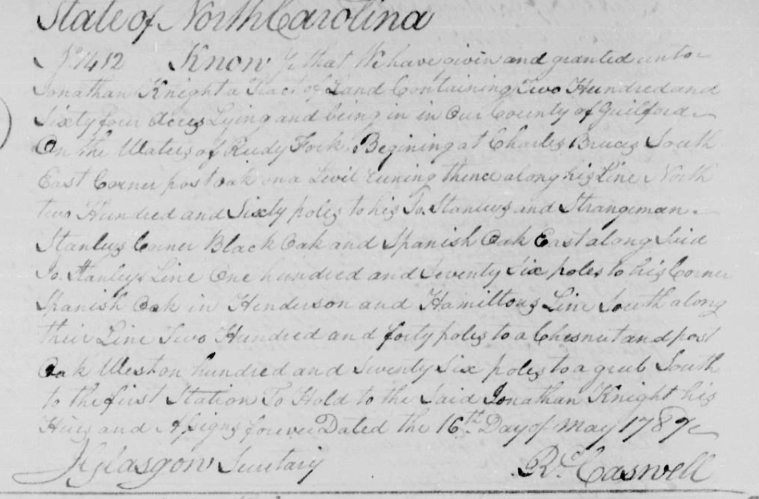 State of North Carolina
No. 1412 Know Ye that We have given and granted unto
Jonathan Knight a Tract of Land Containing Two Hundred and
Sixty four Acres Lying and being in in Our County of Guilford
On the Waters of Reedy Fork Begining at Charles Bruces South
East Corner post oak on a Levil runing thence along his Line North
two Hundred and Sixty poles to his Jo. Stanleys and Strangeman
Stanleys Corner Black Oak and Spanish Oak East along Said
Jo. Stanleys Line One hundred and Seventy Six poles to his Corner
Spanish Oak in Henderson and Hamiltons Line South along
their Line Two Hundred and forty poles to a Chesnut and post
Oak West on hundred and Seventy Six poles to a grub South
to the first Station To Hold to the Said Jonathan Knight his
Heirs and Assigns forever Dated the 16th Day of May 1787
J Glasgow Secretary Rd. Caswell